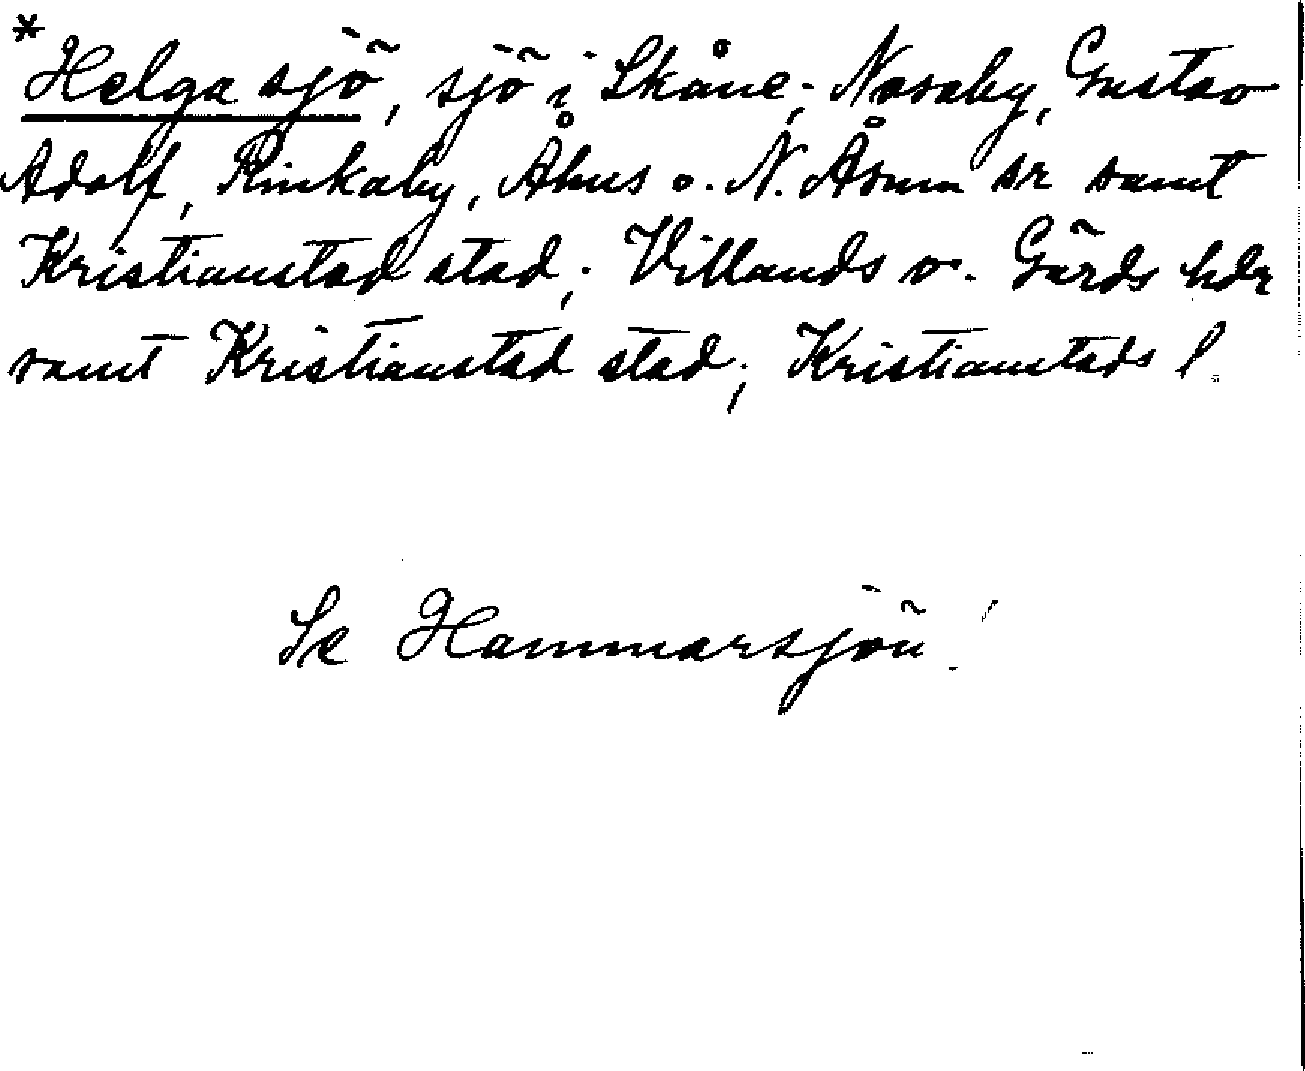 *Helga sjö, sjö i Skåne; Nosaby, Gustav
Adolf, Rinkaby, Åhus o. N. Åsum sr samt
Kristianstad stad; Villands o. Gärds hdr
samt Kristianstad stad; Kristianstads l.
Se Hammarsjön!